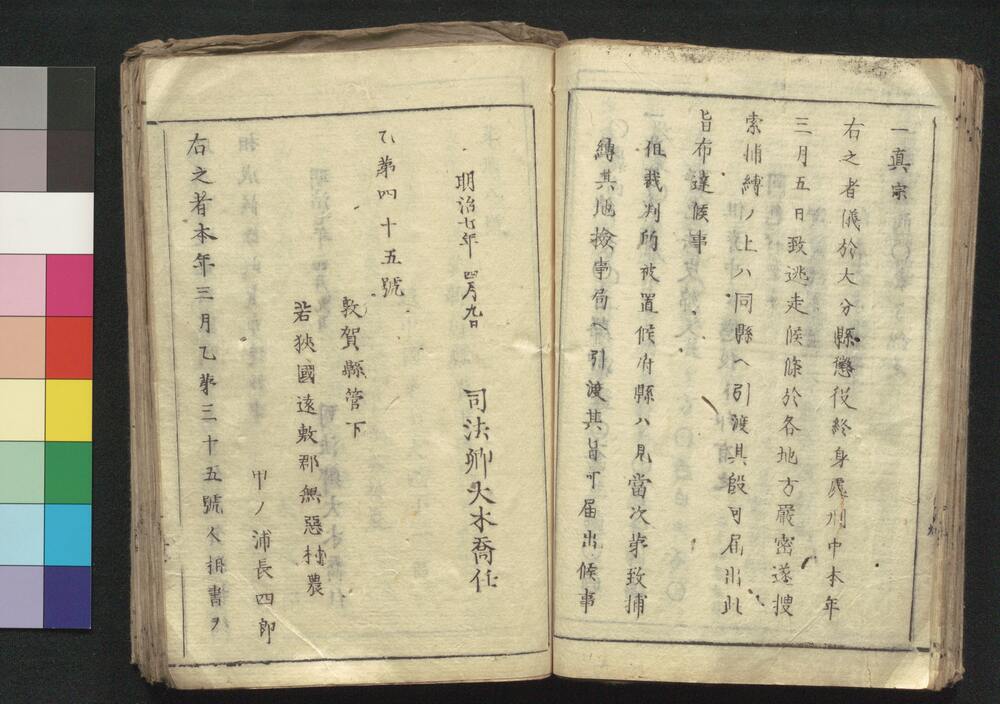 一真宗
右之者儀於大分縣懲役終身處刑中本年
三月五日致逃走候條於各地方嚴密遂搜
索捕縛ノ上ハ同縣ヘ引渡其段可届出此
旨布達候事
一但裁判所被置候府縣ハ見當次第致捕
縛其地撿事局ヘ引渡其旨可届出候事
明治七年四月九日
司法卿大木喬任
乙第四十五號
敦賀縣管下
若狹國遠敷郡無惡村農
甲ノ浦長四郎
右之者本年三月乙第三十五號人相書ヲ